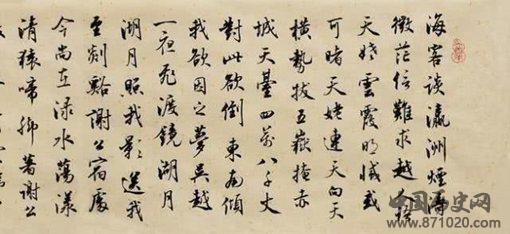 海客談瀛洲煙濤
微茫信難求越人語
天姥雲霞明滅或
可睹天姥連天向天
橫勢拔五嶽掩赤
城天臺四萬八千丈
對此欲倒東南傾
我欲因之夢吳越
一夜飛渡鏡湖月
湖月照我影送我
至剡谿謝公宿處
今尚在淥水蕩漾
清猿啼腳著謝公
中国历史网
www.871020.com